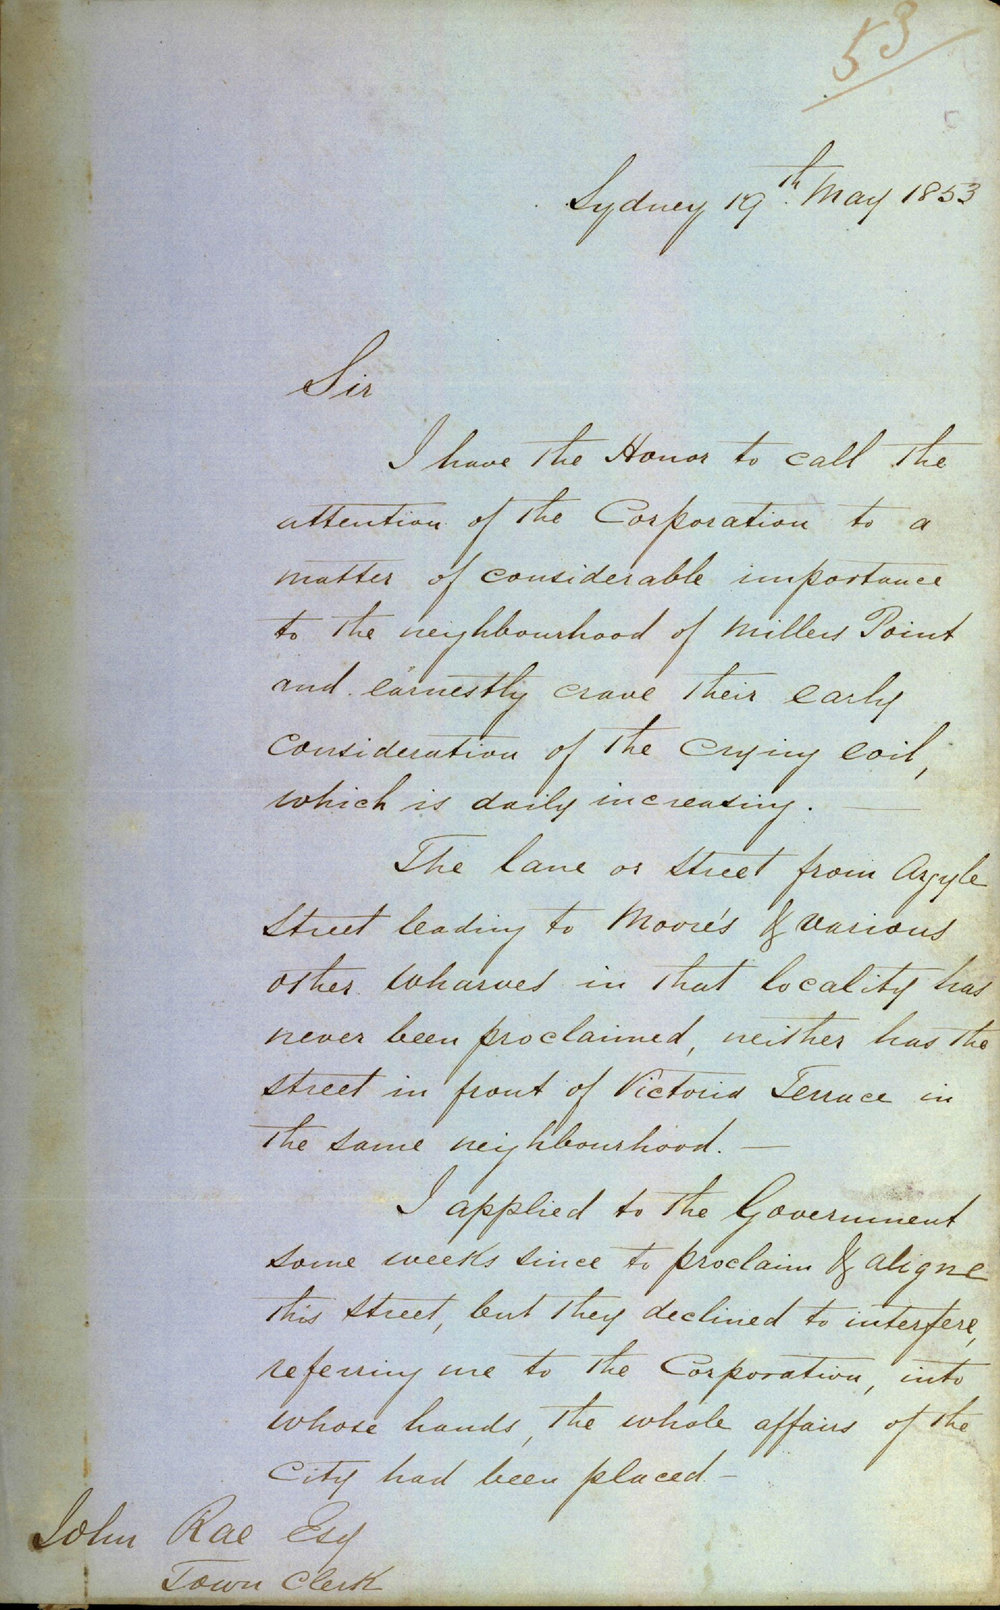 53
Sydney 19th. May 1853
Sir
I have the Honor to call the
attention of the Corporation to a
matter of considerable importance
to the neighbourhood of Millers Point
and earnestly crave their early
consideration of the crying evil,
which is daily increasing. —
The lane or street from Argyle
Street leading to Moore's & various
other wharves in that locality has
never been proclaimed, neither has the
street in front of Victoria Terrace in
the same neighbourhood. —
I applied to the Government
some weeks since to proclaim & aligne
this street, but they declined to interfere,
referring me to the Corporation, into
whose hands, the whole affairs of the
City had been placed —
John Rae Esq
Town Clerk